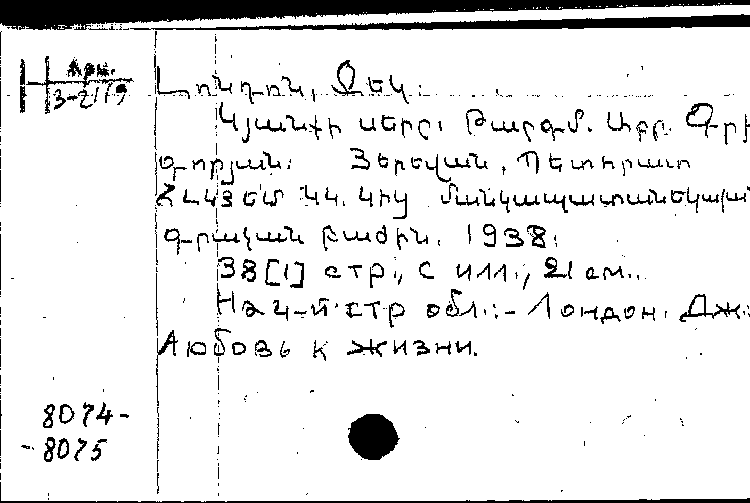 Н Арм.
3-2119
Լոնդոն, Ջեկ.
Կյանքի սերը. Թարգմ. Աբր. Գրի
գորյան. Յերեվան, Պետհրատ
ՀԼԿՅԵՄ ԿԿ. կից մանկապատանեկան
գրական բաժին. 1938.
38 [1] стр., с илл., 21 см..
На 4-й стр обл.:- Лондон. Дж.
Любовь к жизни.
8074-
-8075